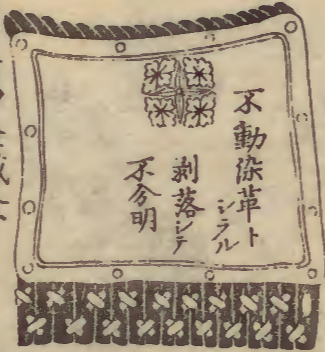 不動染革ト
シラル
剥落シテ
不分明